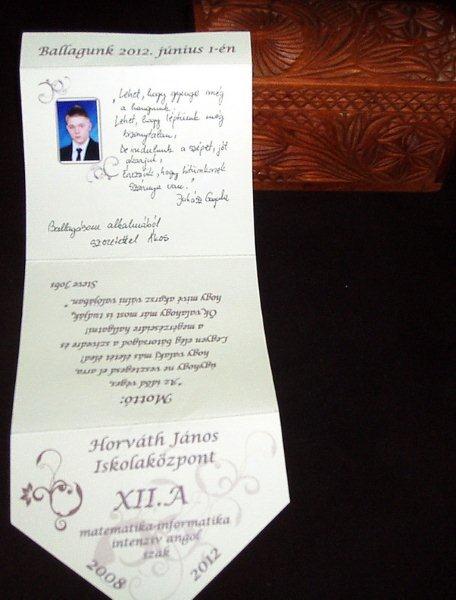 Ballagunk 2012. június 1-én
„Lehet, hogy gyenge még
a hangunk,
Lehet, hogy léptünk még
bizonytalan,
De indulunk a szépet, jót
akarjuk,
Érezzük, hogy hitünknek
szárnya van."
Juhász Gyula
Ballagásom alkalmából
szeretettel Ákos
Mottó:
"Az időd véges,
úgyhogy ne vesztegesd el arra,
hogy valaki más életét éled!
Legyen elég bátorságod a szívedre és
a megérzéseidre hallgatni!
Ők valahogy már most is tudják,
hogy mivé akarsz válni valójában."
Steve Jobs
Horváth János
Iskolaközpont
XII.A
matematika-informatika
intenzív angol
szak
2008 2012